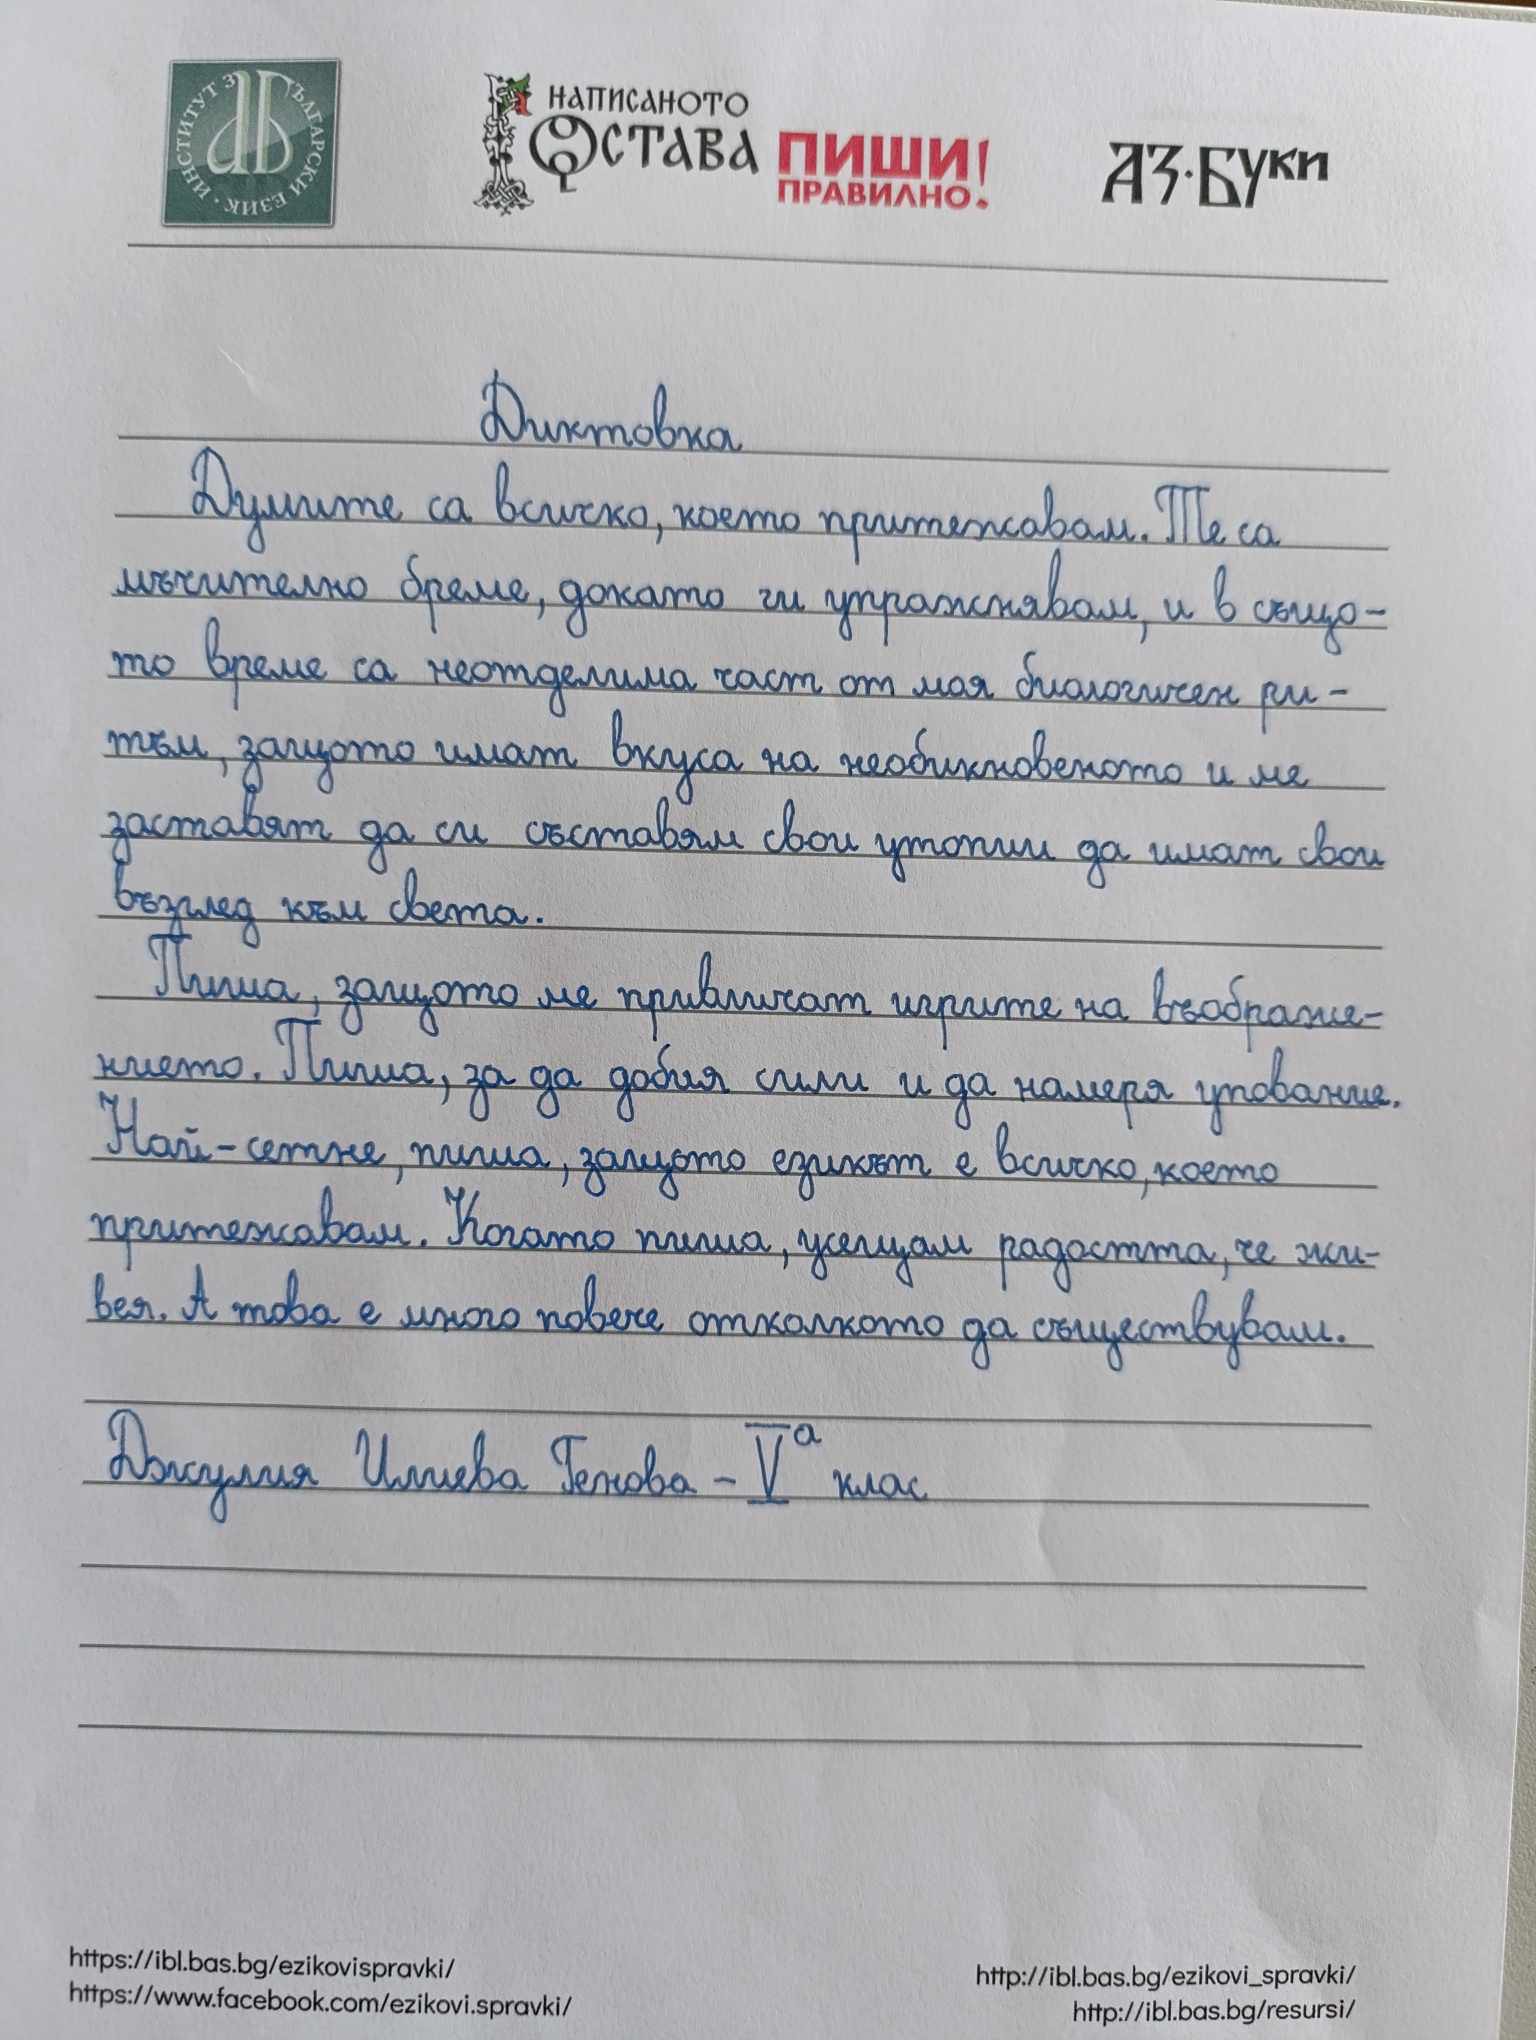 ИНСТИТУТ ЗА БЪЛГАРСКИ ЕЗИК
НАПИСАНОТО
ОСТАВА
ПИШИ
ПРАВИЛНО!
АЗ·БУКИ
Диктовка
Думите са всичко, което притежавам. Те са
мъчително бреме, докато ги упражнявам, и в също-
то време са неотделима част от моя биологичен ри-
тъм, защото имат вкуса на необикновеното и ме
заставят да си съставям свои утопии да имат свои
възглед към света.
Пиша, защото ме привличат игрите на въображе-
нието. Пиша, за да добия сили и да намеря упование.
Най-сетне, пиша, защото езикът е всичко, което
притежавам. Когато пиша, усещам радостта, че жи-
вея. А това е много повече отколкото да съществувам.
Джулия Илиева Генова - V а клас
https://ibl.bas.bg/ezikovispravki/
https://www.facebook.com/ezikovi.spravki/
http://ibl.bas.bg/ezikovi_spravki/
http://ibl.bas.bg/resursi/